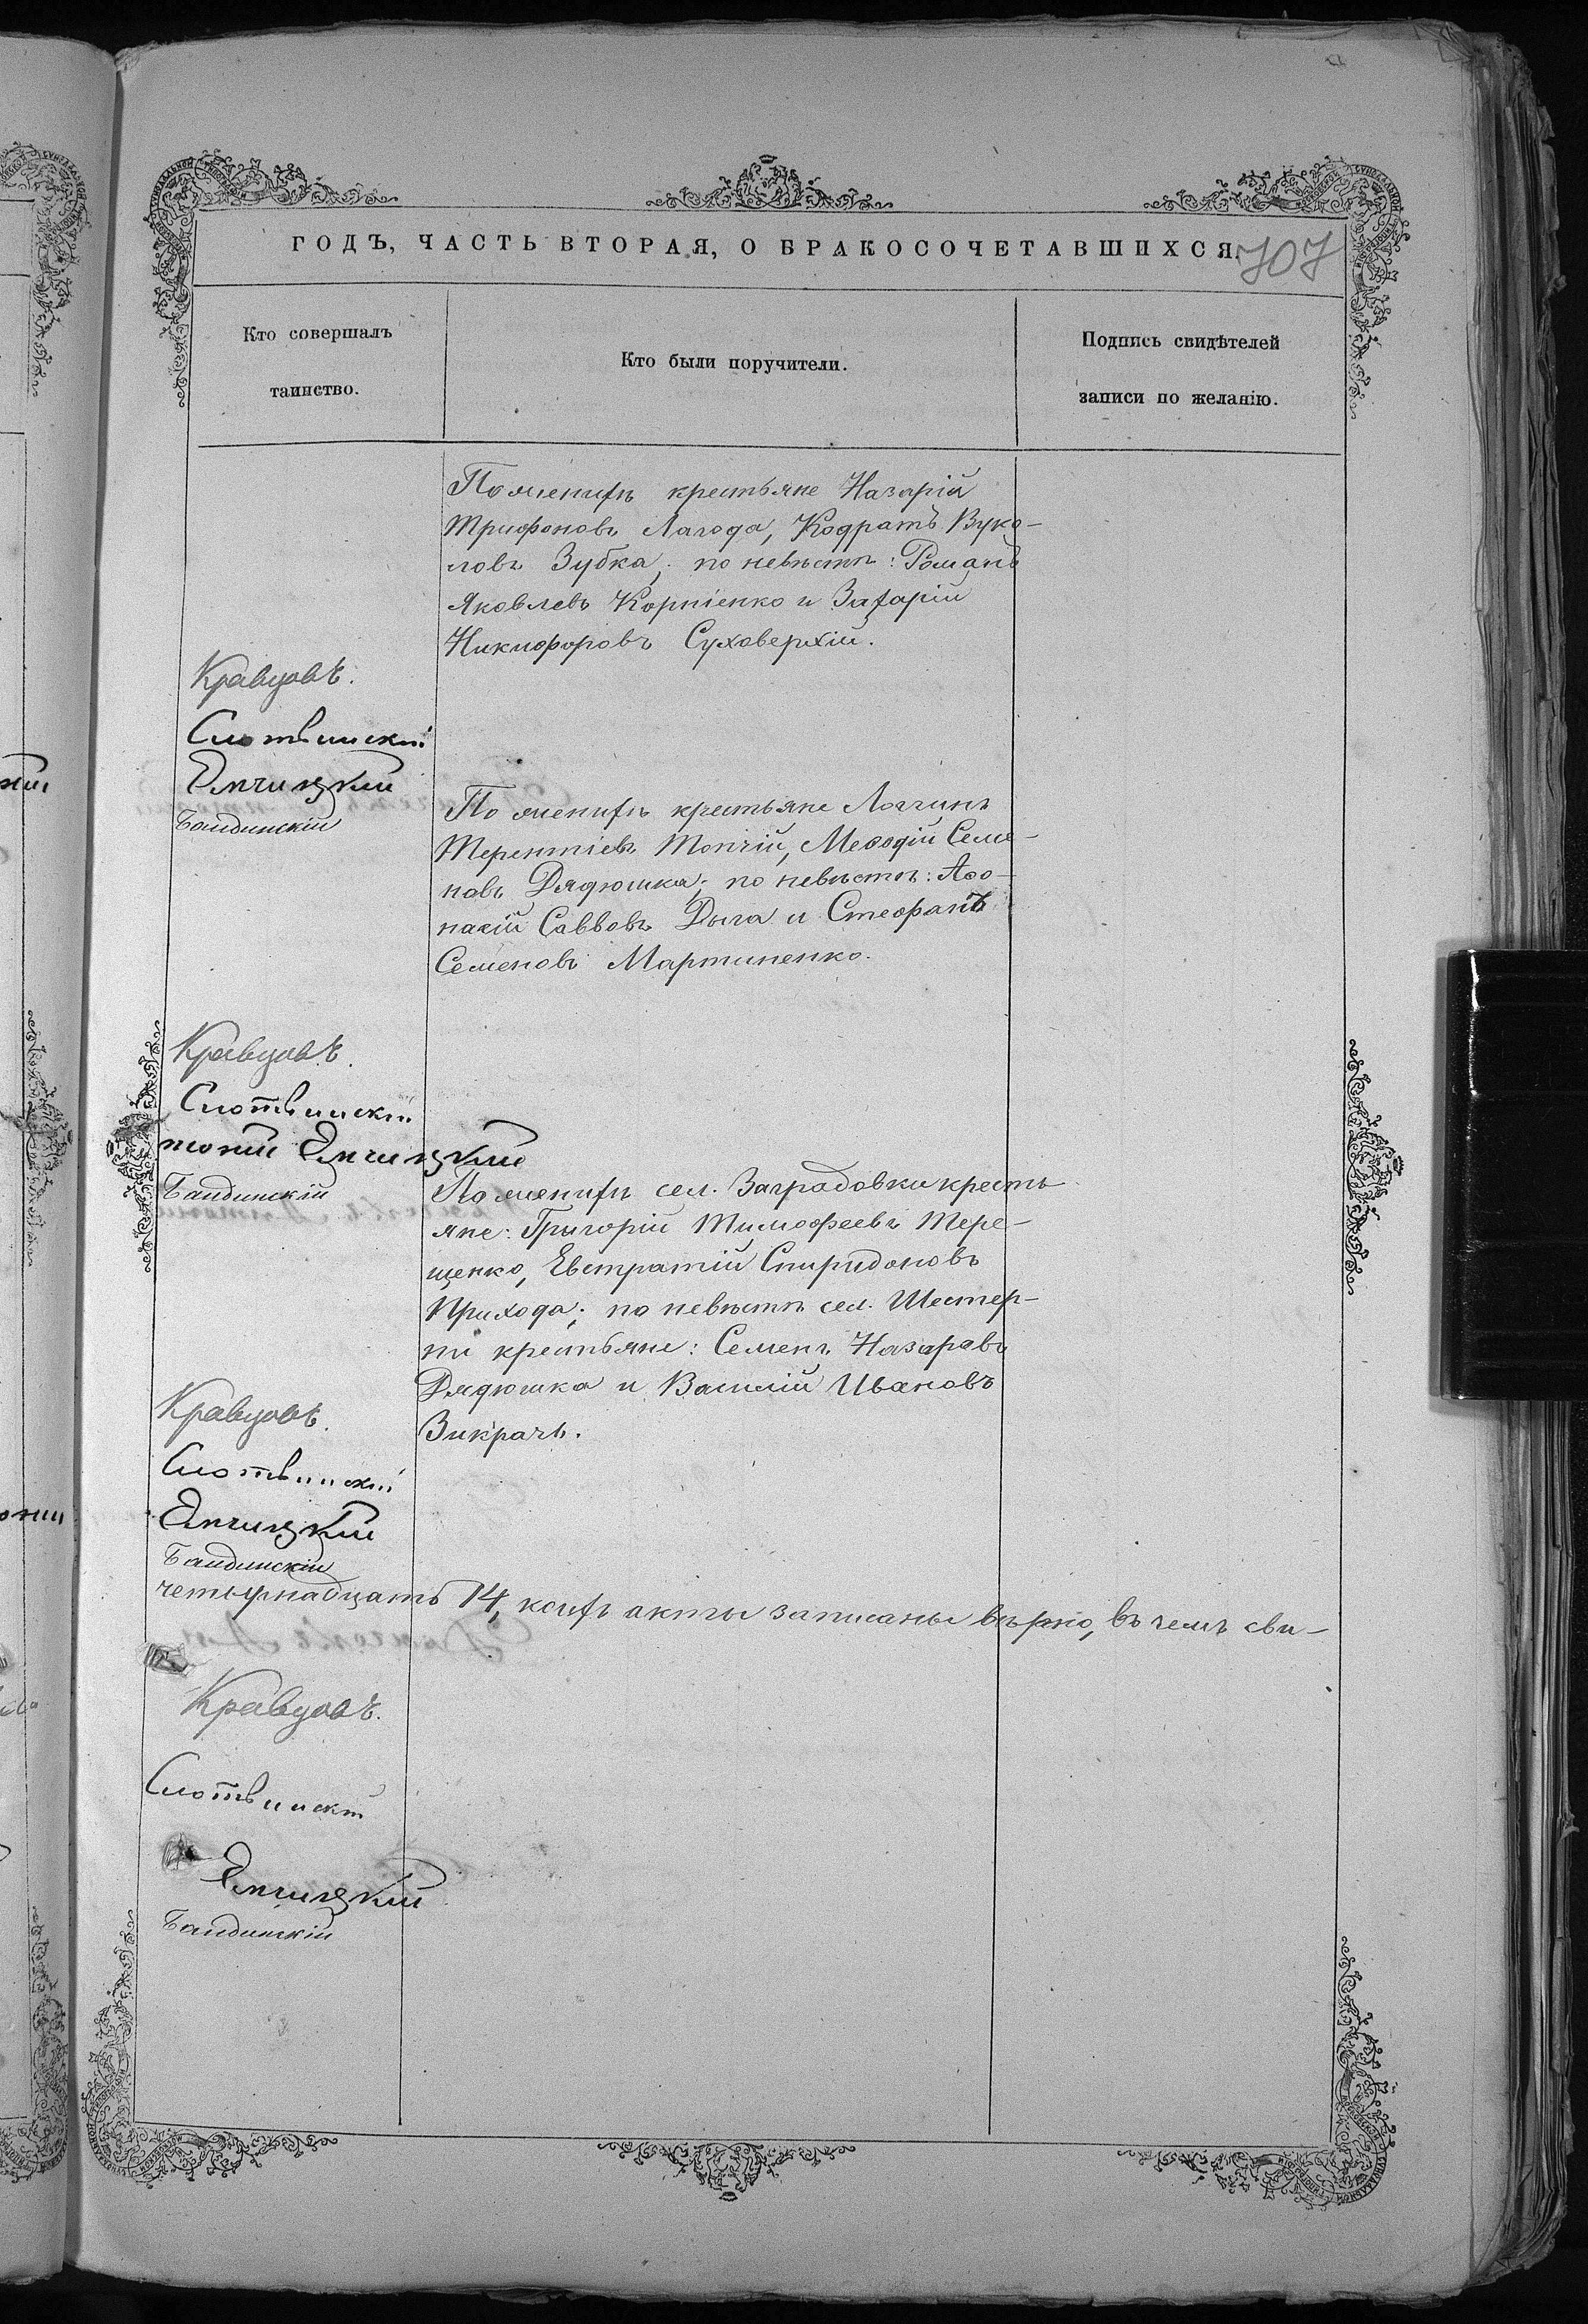 ГОДЪ, ЧАСТЬ ВТОРАЯ, О БРАКОСОЧЕТАВШИХСЯ.
707
Кто совершалъ
таинство.
Кто были поручители.
Подпись свидѣтелей
записи по желанію.
По женихѣ крестьяне Назарій
Трифоновъ Лагода, Кодратъ Вуко-
ловъ Зубка; по невѣстѣ: Романъ
Яковлевъ Корніенко и Захарій
Никифоровъ Суховерхій.
Кравцовъ.
Слотвинскій
Емчицкій
Бандинскій
По женихѣ крестьяне Логгинъ
Терентіевъ Топчій, Меѳодій Семе-
новъ Дядюшка; по невѣстѣ: Аѳо-
насій Саввовъ Дыга и Стефанъ
Семеновъ Мартиненко.
Кравцовъ.
Слотвинскій
тоній Емчицкій
Бандинскій
По женихѣ сел. Заградовки кресть
яне: Григорій Тимофеевъ Тере-
щенко, Евстратій Спиридоновъ
Прихода; по невѣстѣ сел. Шестер-
ни крестьяне: Семенъ Назаровъ
Дядюшка и Василій Ивановъ
Викрачъ.
Кравцовъ.
Слотвинскій
Емчицкій
Бандинскій
четырнадцать 14, коихъ акты записаны вѣрно, въ чемъ сви-
Кравцовъ.
Слотвинскій
Емчицкій
Бандинскій